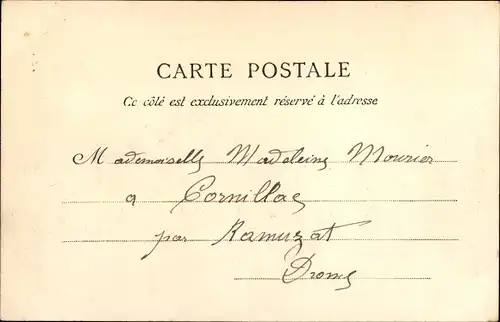 CARTE POSTALE
Ce côté est exclusivement réservé à l'adresse
Mademoiselle Madeleine Mourier
a Cornillac
par Ramuzat
Drome